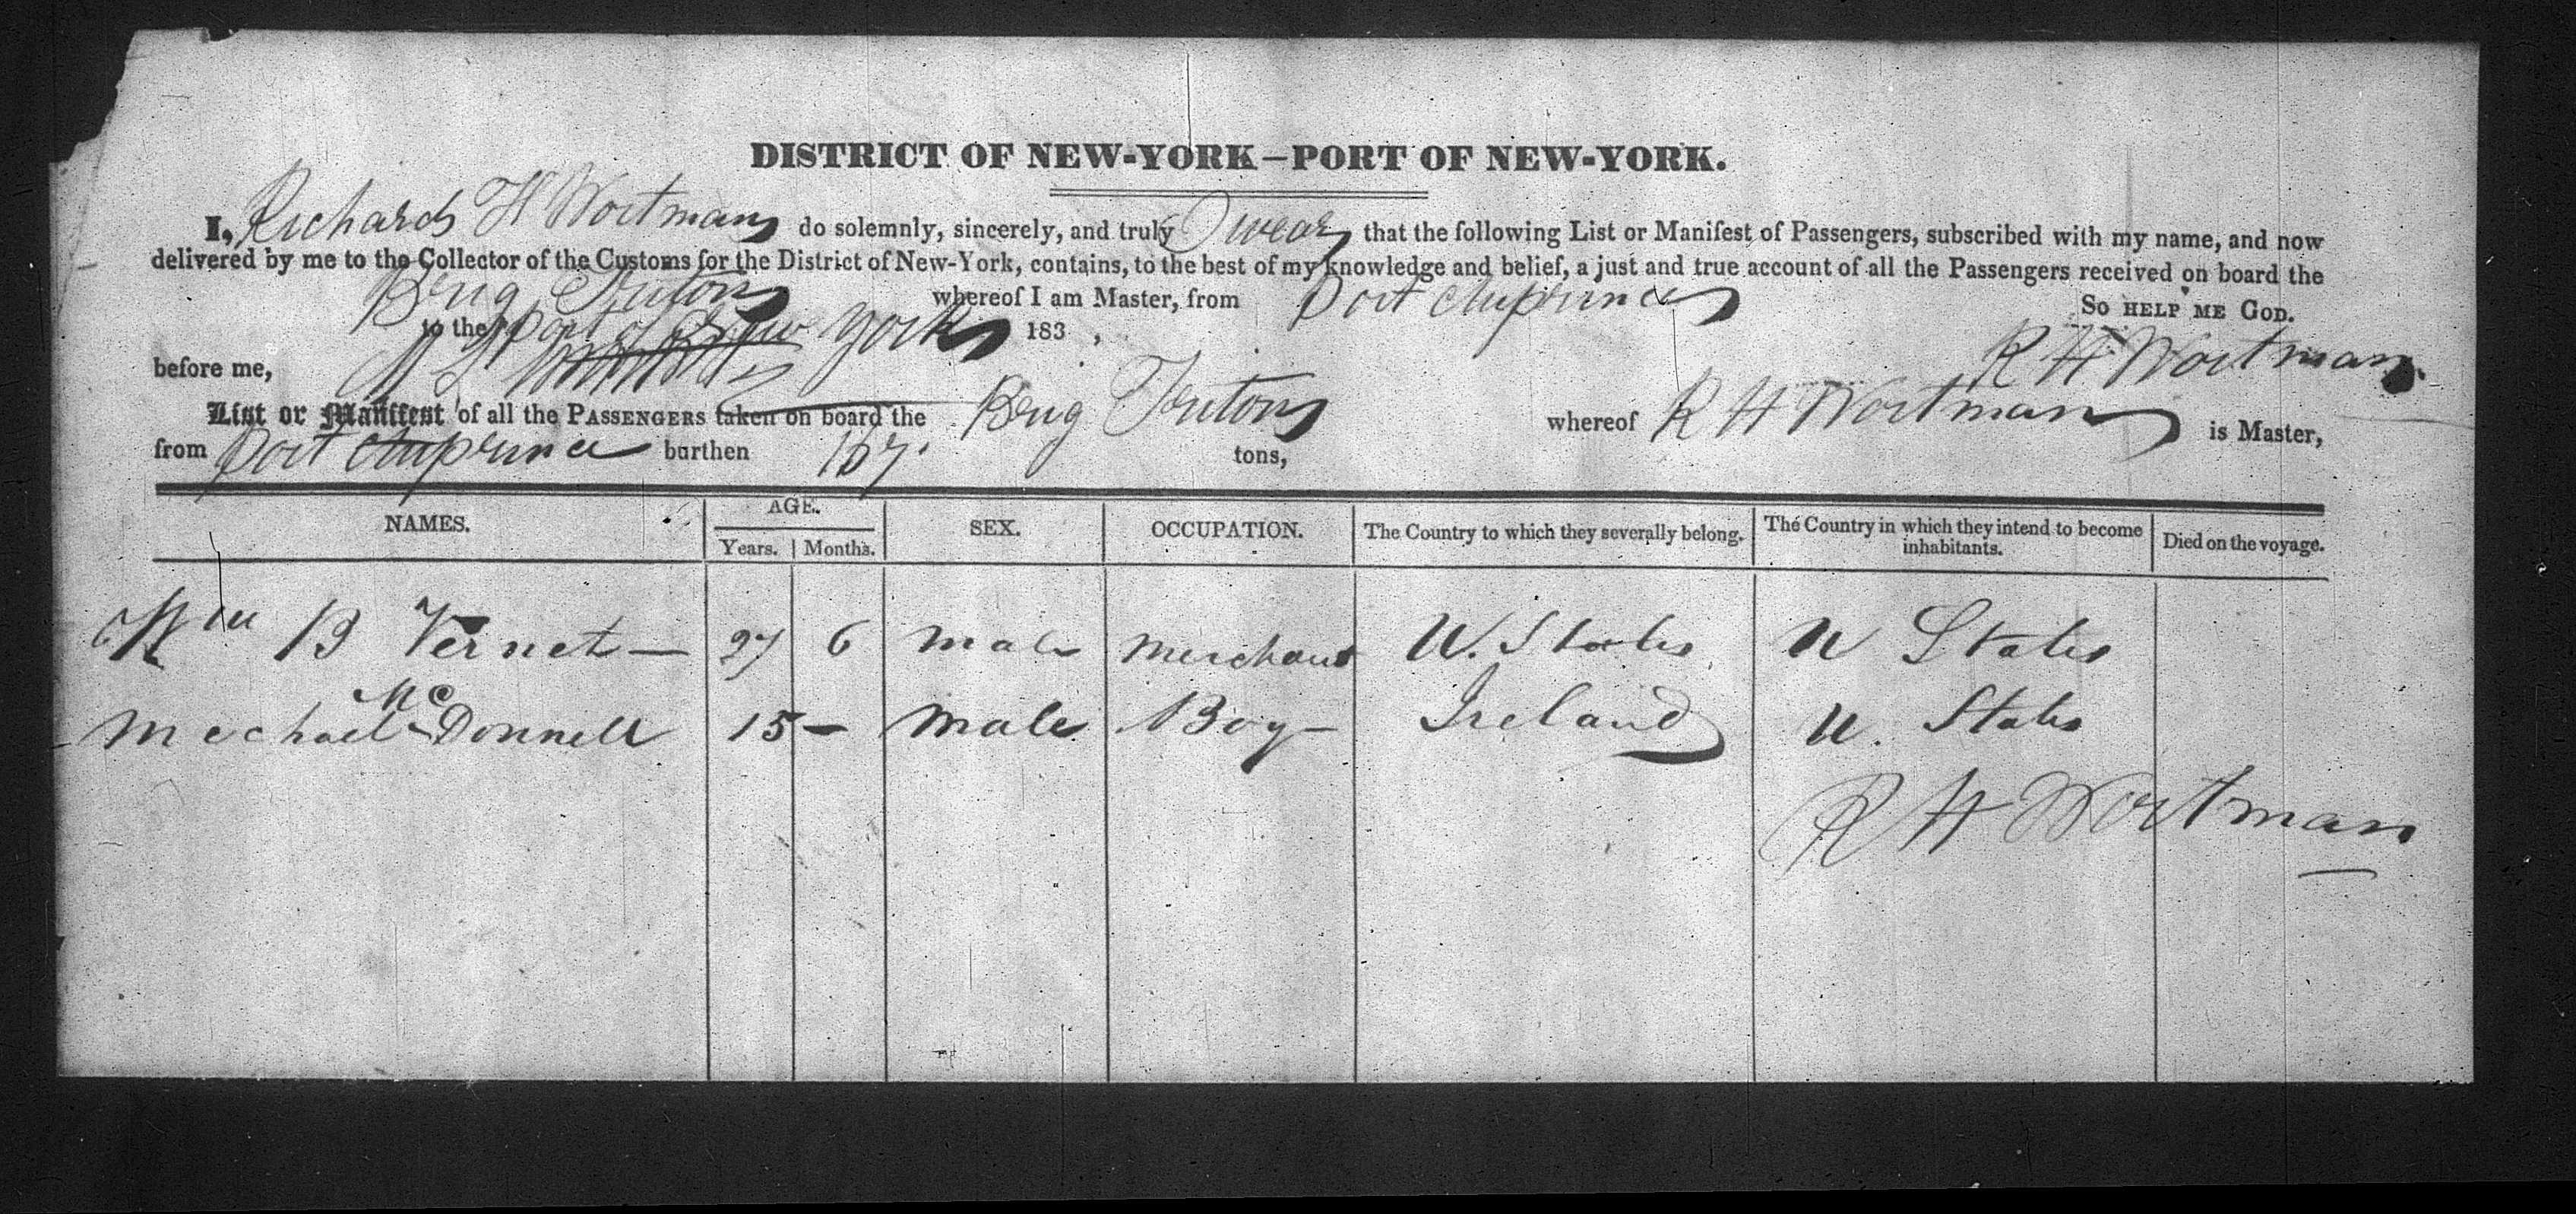 DISTRICT OF NEW-YORK—PORT OF NEW-YORK.
I, Richard H Wortman do solemnly, sincerely, and truly Swear that the following List or Manifest of Passengers, subscribed with my name, and now
delivered by me to the Collector of the Customs for the District of New-York, contains, to the best of my knowledge and belief, a just and true account of all the Passengers received on board the
Brig Triton whereof I am Master, from Port Auprince
to the port of New York 183 , So HELP ME GOD.
before me, R H Wortman
List or Manifest of all the PASSENGERS taken on board the Brig Triton whereof R H Wortman is Master,
from Port Auprince burthen 167. tons,
NAMES. AGE. Years. Months. SEX. OCCUPATION. The Country to which they severally belong. The Country in which they intend to become inhabitants. Died on the voyage.
Wm B Vernet — 27 6 male merchant U. States U States
Mechael McDonnell 15 — male Boy — Ireland U. States
R H Wortman